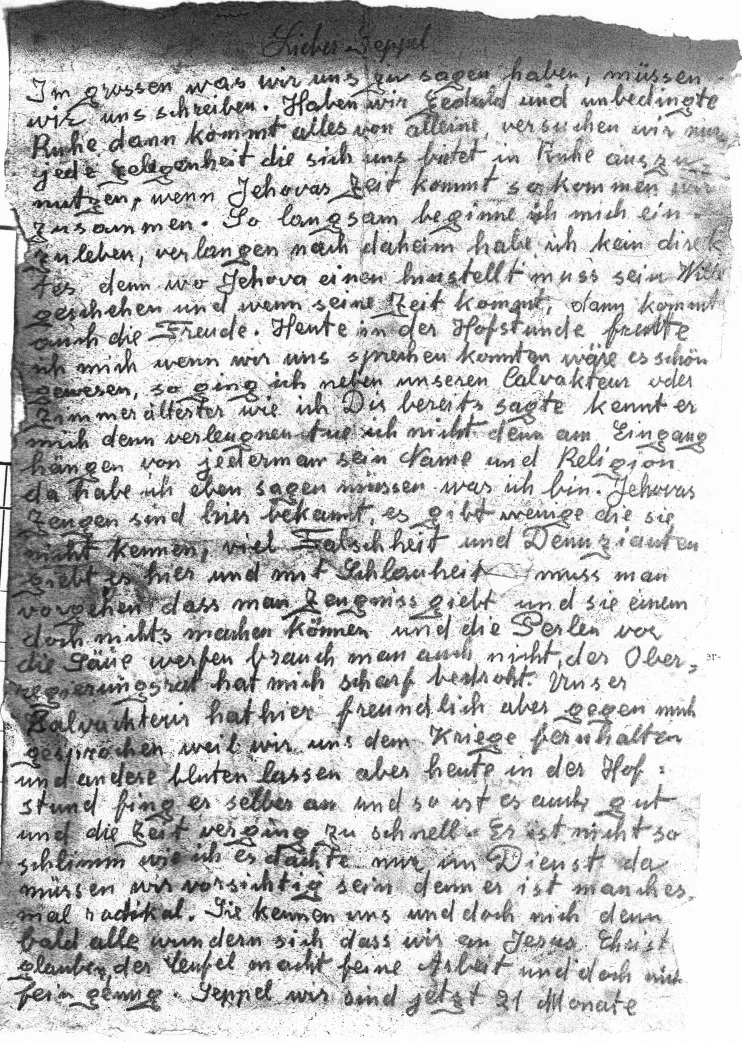 Lieber Seppel
Im grossen was wir uns zu sagen haben, müssen
wir uns schreiben. Haben wir Geduld und unbedingte
Ruhe dann kommt alles von alleine, versuchen wir nur
jede Gelegenheit die sich uns bietet in Ruhe auszu-
nutzen, wenn Jehovas Zeit kommt so kommen wir
zusammen. So langsam beginne ich mich ein-
zuleben, verlangen nach daheim habe ich kein direk
tes denn wo Jehova einen hinstellt muss sein Wille
geschehen und wenn seine Zeit kommt, dann kommt
auch die Freude. Heute in der Hofstunde freute
ich mich wenn wir uns sprechen konnten wäre es schön
gewesen, so ging ich neben unseren Calvakteur oder
Zimmerältester wie ich Dir bereits sagte kennt er
mich denn verleugnen tue ich nicht denn am Eingang
hängen von jederman sein Name und Religion
da habe ich eben sagen müssen was ich bin. Jehovas
Zeugen sind hier bekannt, es gibt wenige die sie
nicht kennen, viel Falschheit und Denunzianten
giebt es hier und mit Schlauheit muss man
vorgehen dass man Zeugniss giebt und sie einem
doch nichts machen können und die Perlen vor
die Säue werfen brauch man auch nicht, der Ober-
regierungsrat hat mich scharf bedroht. Unser
Kalvackteur hat hier freundlich aber gegen mich
gesprochen weil wir uns dem Kriege fernhalten
und andere bluten lassen aber heute in der Hof:
stund fing er selber an und so ist es auch gut
und die Zeit verging zu schnell. Es ist nicht so
schlimm wie ich es dachte nur im Dienst da
müssen wir vorsichtig sein denn er ist manches
mal radikal. Sie kennen uns und doch nich denn
bald alle wundern sich dass wir an Jesus Christ
glauben, der Teufel macht feine Arbeit und doch nich
fein genug. Seppel wir sind jetzt 21 Monate
er-